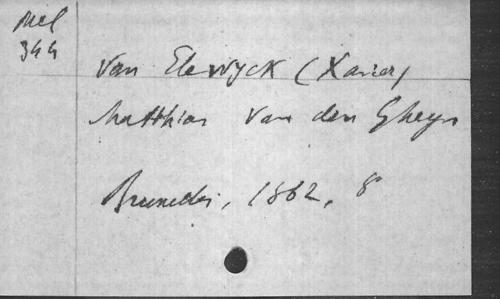 Mel
344
Van Elewyck (Xavier)
Matthias Van den Gheyn
Bruxelles, 1862, 8°